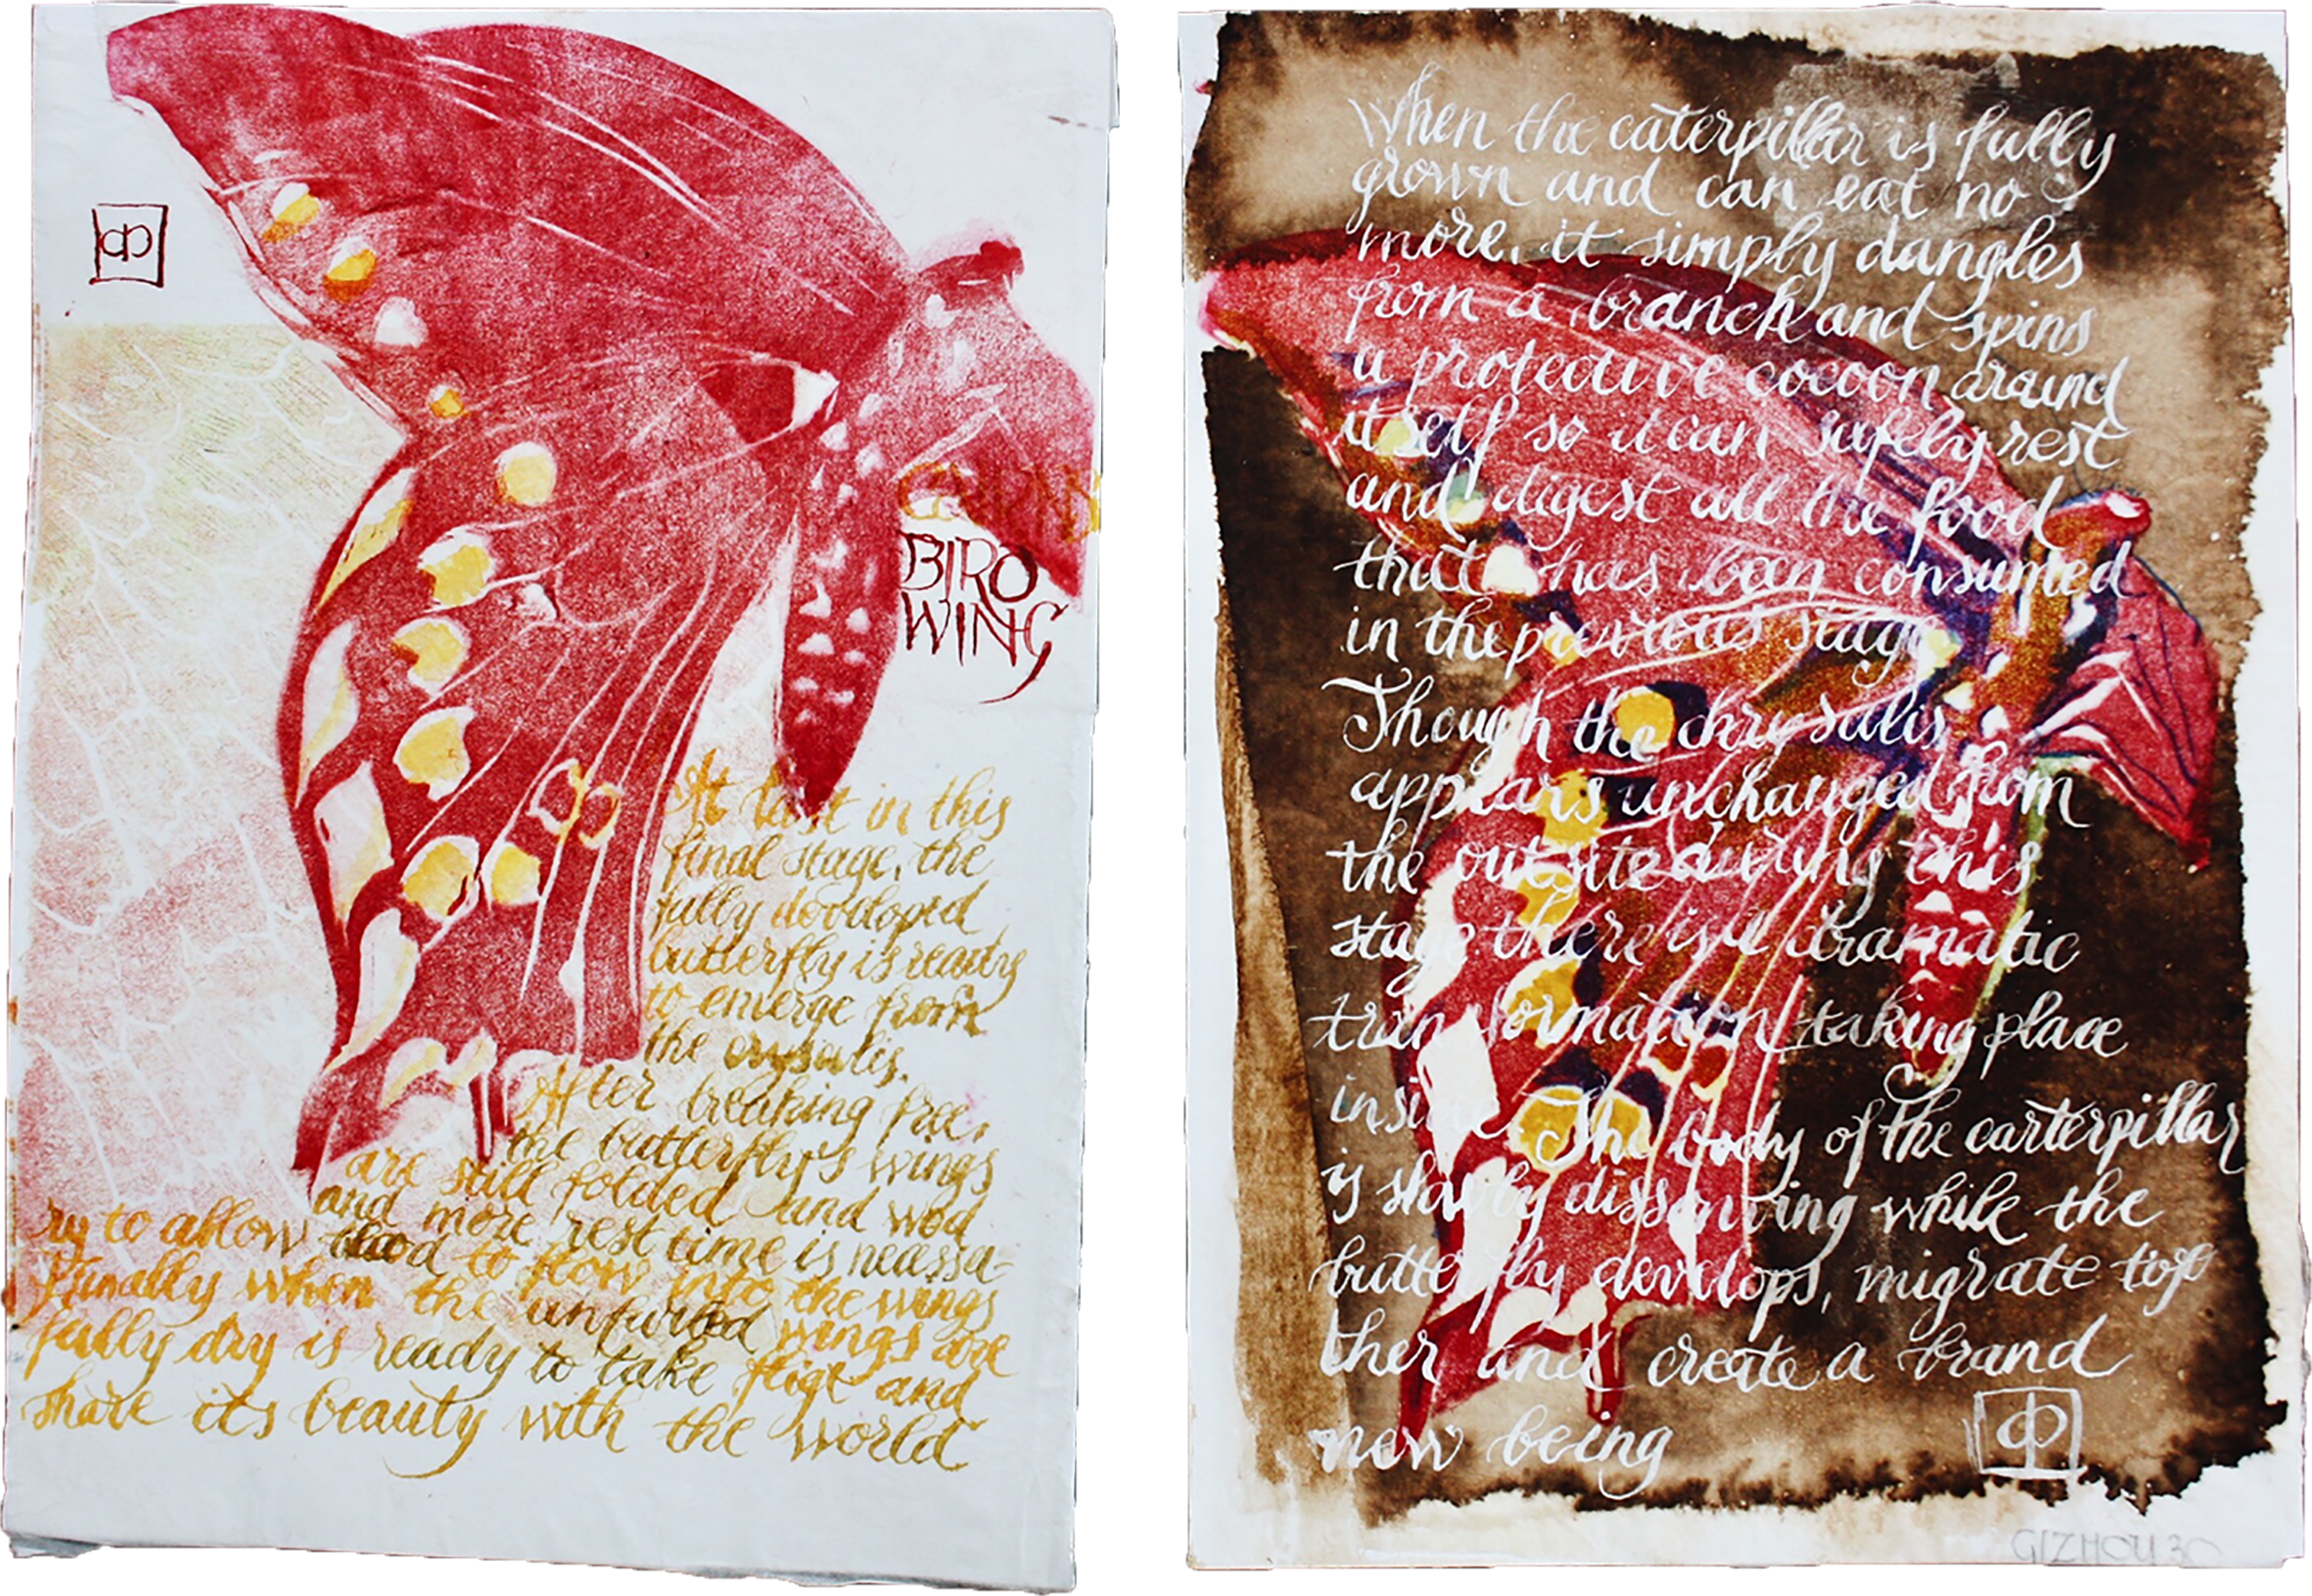 BIRD
WING
At last in this
final stage, the
fully dovoloped
butterfly is ready
to emerge from
the crysalis.
After breaking free,
the butterfly's wings
are still folded and wod
and more rest time is necessa-
ry to allow blood to flow into the wings
Finally when the unfurled wings are
fully dry is ready to take fligt and
share its beauty with the world
When the caterpillar is fully
grown and can eat no
more, it simply dangles
from a branch and spins
a protective cocoon around
itself so it can safely rest
and digest all the food
that has been consumed
in the previous stage
Though the chrysalis
appears unchanged from
the outsite during this
stage there is a dramatic
transformation taking place
inside The body of the carterpillar
is slowly dissolving while the
butterfly develops, migrate toge
ther and create a brand
new being
GIZHOU 30